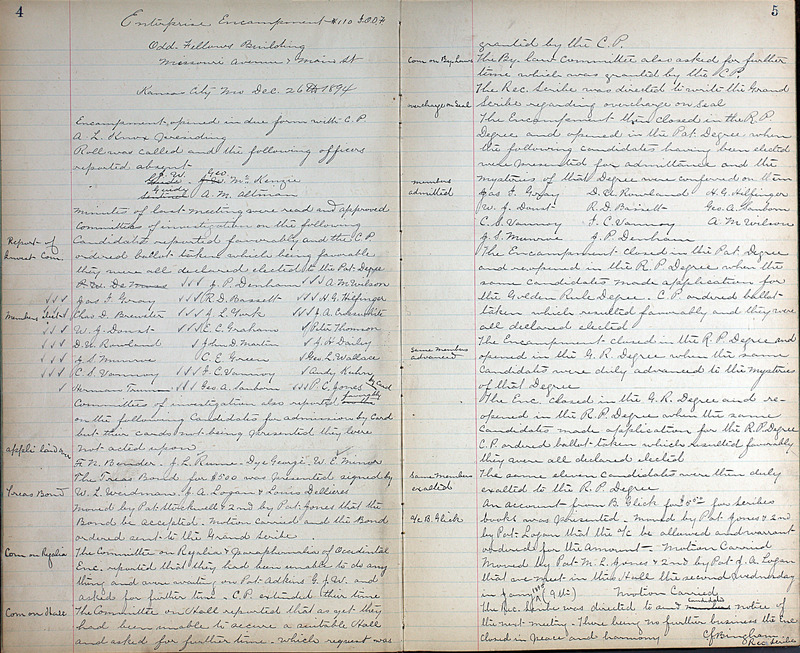 4
Enterprise Encampment #110 I.O.O.F.
Odd Fellows Building
Missouri Avenue & Main St
Kansas City Mo Dec. 26th 1894
Encampment opened in due form with C.P.
A. L. Knox Presiding
Roll was called and the following officers
reported absent
J. W. Geo. Mc Kenzie
Guide A. M. Allerian
Minutes of last meeting were read and approved
Report of Invest. Com.
Committees of investigation on the following
Candidates reported favorably and the C.P.
ordered ballot taken which being favorable
they were all declared elected to the Pat. Degree
$$$ J. P. Denham $$$ A. M. Wilson
$$$ Jas. F. Gray $$$ R. D. Bassett $$$ H. G. Hilfinger
Members elected Chas D. Brewster $$$ J. L. York $$$ J. A.
$$$ W. J. Doust $$$ E. C. Graham $ Peter Thomson
$$$ D. U. Rowland $ John D. Martin $ J. H. Dailey
$$$ J. S. Munroe C. E. Green $ Geo. L. Wallace
$$$ C. S. Vannoy $$$ F. C. Vannoy $ Andy Kuhn
$ Herman $$$ Geo. A. Sanborn $$$ P. C. Jones by Card
Committees of investigation also reported favorably
on the following Candidates for admission by Card
but their cards not being presented they were
not acted upon
F. N. Bender. J. L. Rume. Dye George. W. E. Minor
Treas Bond
The Treas Bond for $500 was presented signed by
W. L. Weidman. J. A. Logan & Louis
Moved by Pat. Stockwell & 2nd by Pat. Jones that the
Bond be accepted. Motion Carried and the Bond
ordered sent to the Grand Scribe.
Com on Regalia
The Committee on Regalia & Paraphernalia of Occidental
Enc. reported that they had been unable to do any
thing and were waiting on Pat. Adkins G. J. W. and
asked for further time. C.P. extended their time
Com on Hall
The Committee on Hall reported that as yet they
had been unable to secure a suitable Hall
and asked for further time. which request was
5
granted by the C.P.
Com on By Laws
The By. law Committee also asked for further
time which was granted by the C.P.
The Rec. Scribe was directed to write the Grand
overcharge on Seal
Scribe regarding overcharge on seal
The Encampment then closed in the R.P.
Degree and opened in the Pat. Degree when
the following candidates having been elected
were presented for admittance and the
members admitted
mysteries of that Degree were conferred on them
Jas F. Gray D. U. Rowland H. G. Hilfinger
W. J. Doust R. D. Bassett Geo. A. Sanborn
C. S. Vannoy F. C. Vannoy A. M. Wilson
J. S. Munroe J. P. Denham
The Encampment closed in the Pat. Degree
and reopened in the R.P. Degree when the
same candidates made application for
the Golden Rule Degree. C.P. ordered ballot
taken which resulted favorably and they were
all declared elected
The Encampment closed in the R.P. Degree and
Same members advanced
opened in the G.R. Degree when the same
Candidates were duly advanced to the mysteries
of that Degree
The Enc. closed in the G.R. Degree and re-
opened in the R.P. Degree when the same
candidates made application for the R.P. Degree
C.P. ordered ballot taken which resulted favorably
they were all declared elected
Same members exalted
The same eleven candidates were then duly
exalted to the R.P. Degree
An account from B. Glick for for Scribes
a/c B. Glick
books was presented. Moved by Pat. Jones & 2nd
by Pat. Logan that the a/c be allowed and warrant
ordered for the amount - Motion Carried
Moved by Pat. M. L. Jones & 2nd by Pat. J. A. Logan
that we meet in this Hall the second Wednesday
in Jany 1895 (9th) Motion Carried
The Rec. Scribe was directed to send notice of
the next meeting. There being no further business the Enc
closed in peace and harmony C J Bingham
Rec. Scribe